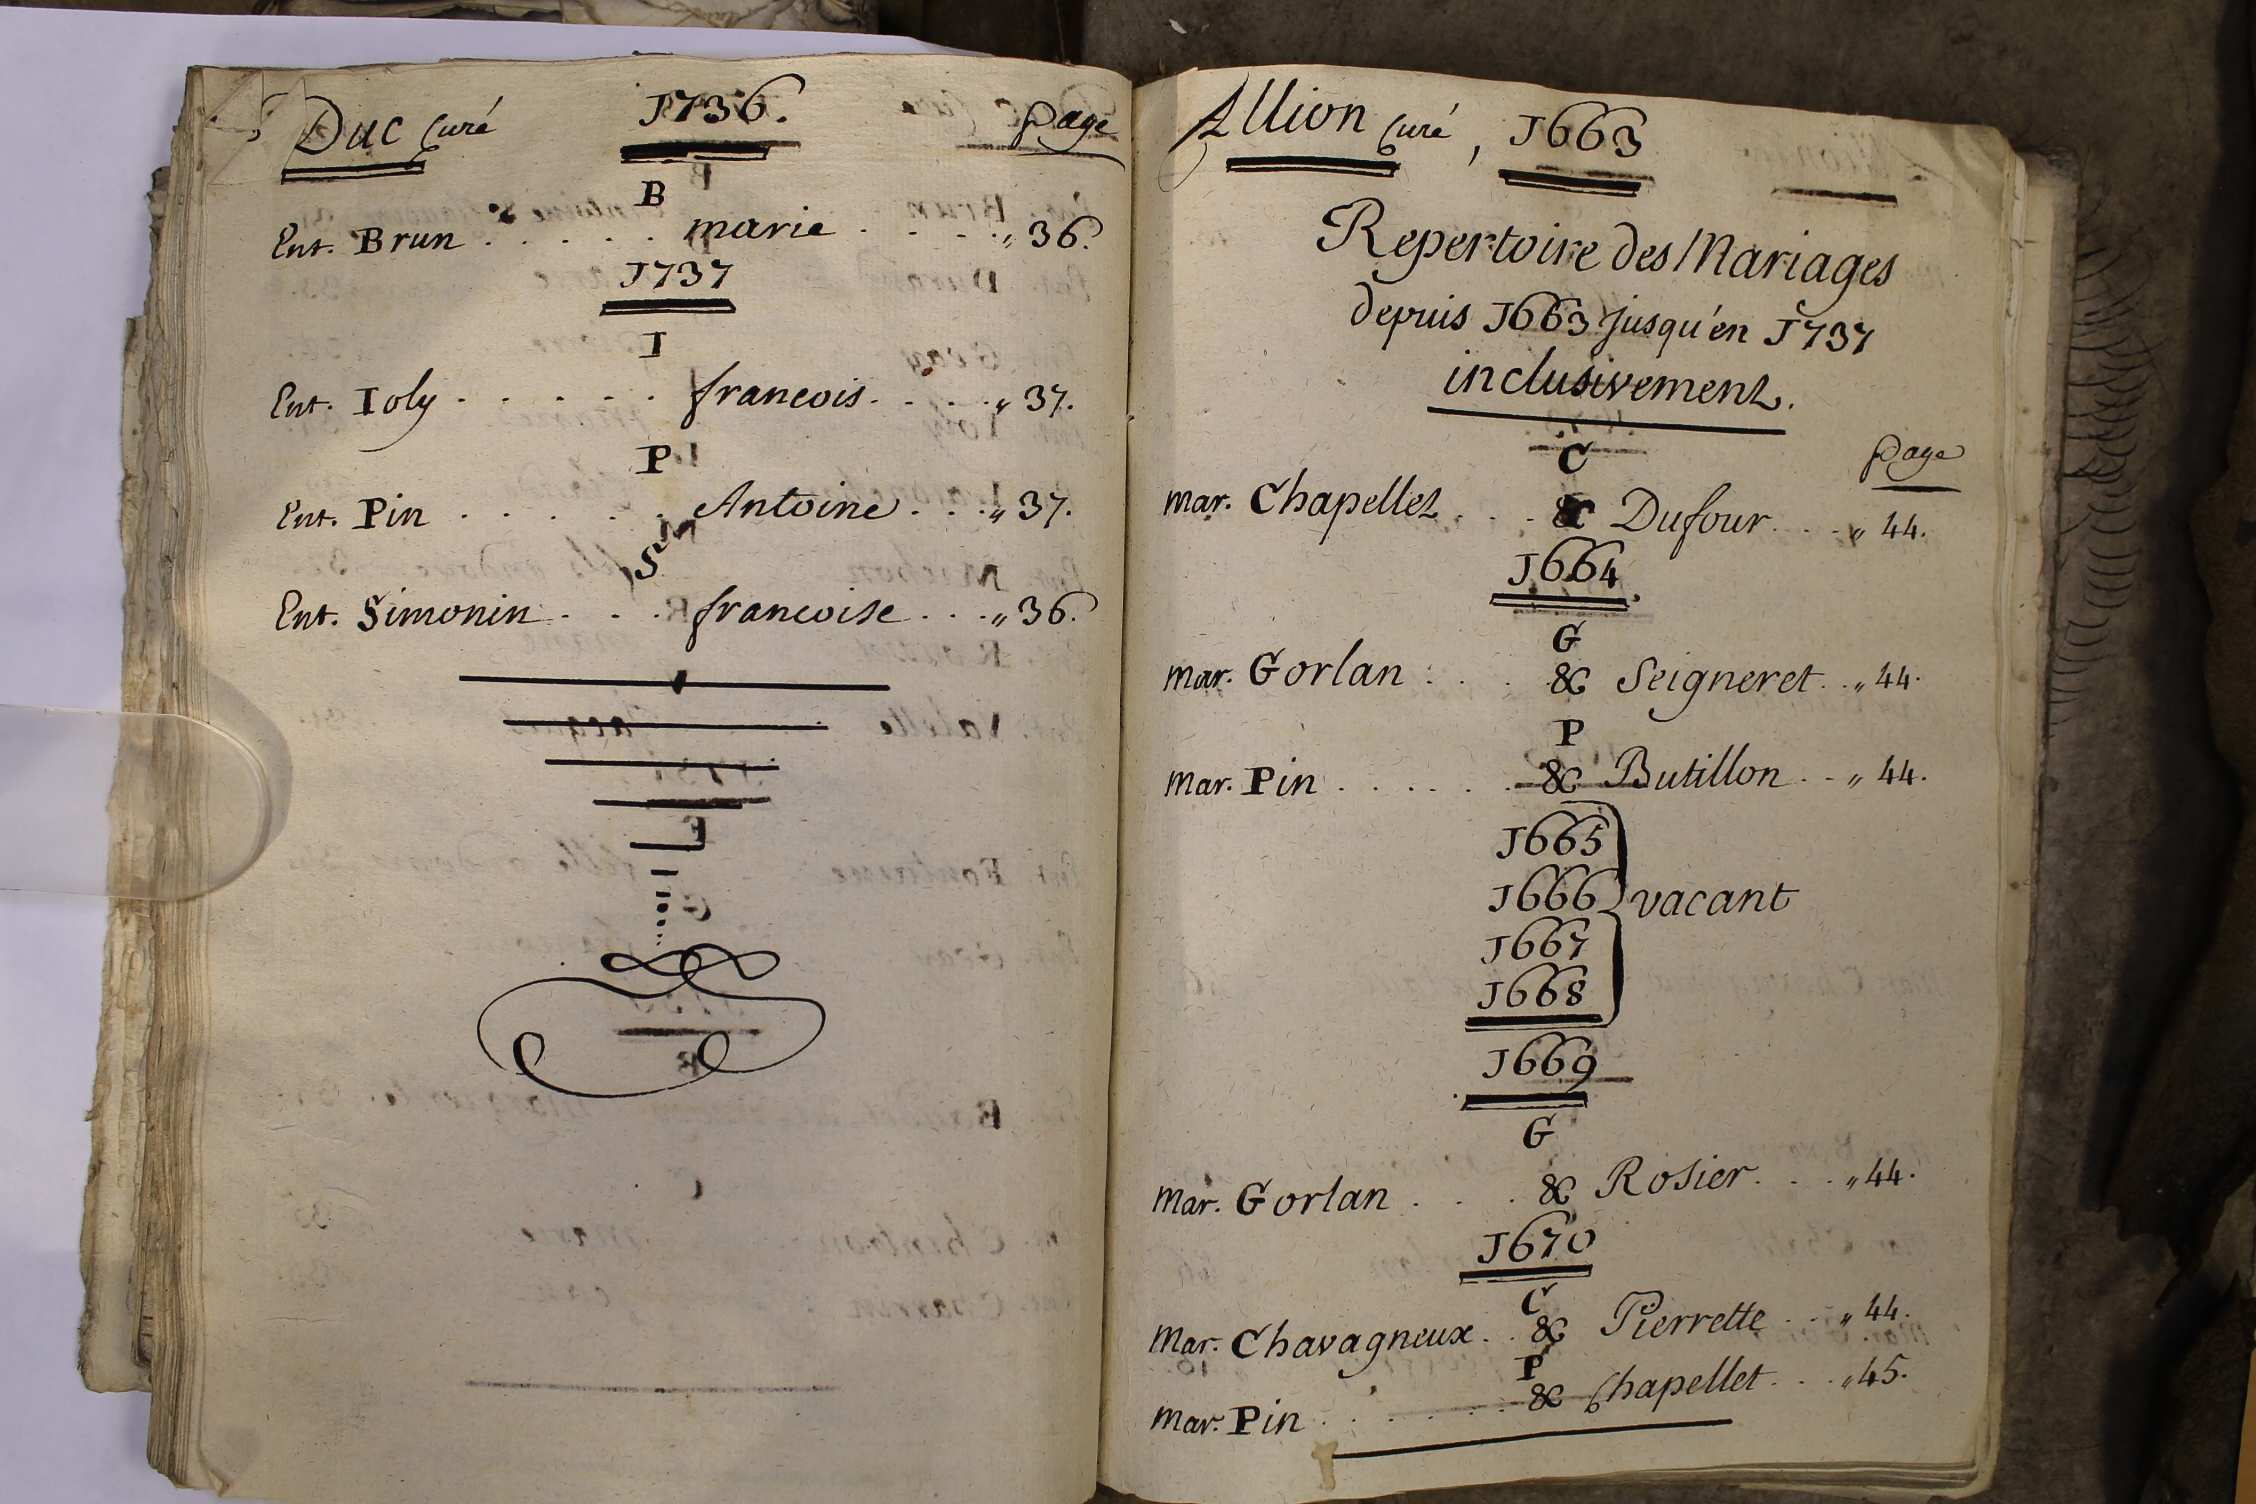 Duc Curé J736. page
B
Ent. Brun . . . . . marie . . . . „ 36.
J737
I
Ent. Ioly . . . . . . francois . . . . „ 37.
P
Ent. Pin . . . . . . Antoine . . . „ 37.
S
Ent. Simonin . . . francoise . . . „ 36.
Allion Curé, J663
Repertoire des Mariages
depuis J663 jusqu'en J737
inclusivement.
page
C
Mar. Chapellet . . . & Dufour . . . „ 44.
J664
G
Mar. Gorlan . . . & Seigneret . . „ 44.
P
Mar. Pin . . . . . . & Butillon . . „ 44.
J665
J666 vacant
J667
J668
J669
G
Mar. Gorlan . . . & Rosier . . . . „ 44.
J670
C
Mar. Chavagneux . . & Pierrette . . „ 44.
P
Mar. Pin . . . . . . & Chapellet . . . „ 45.